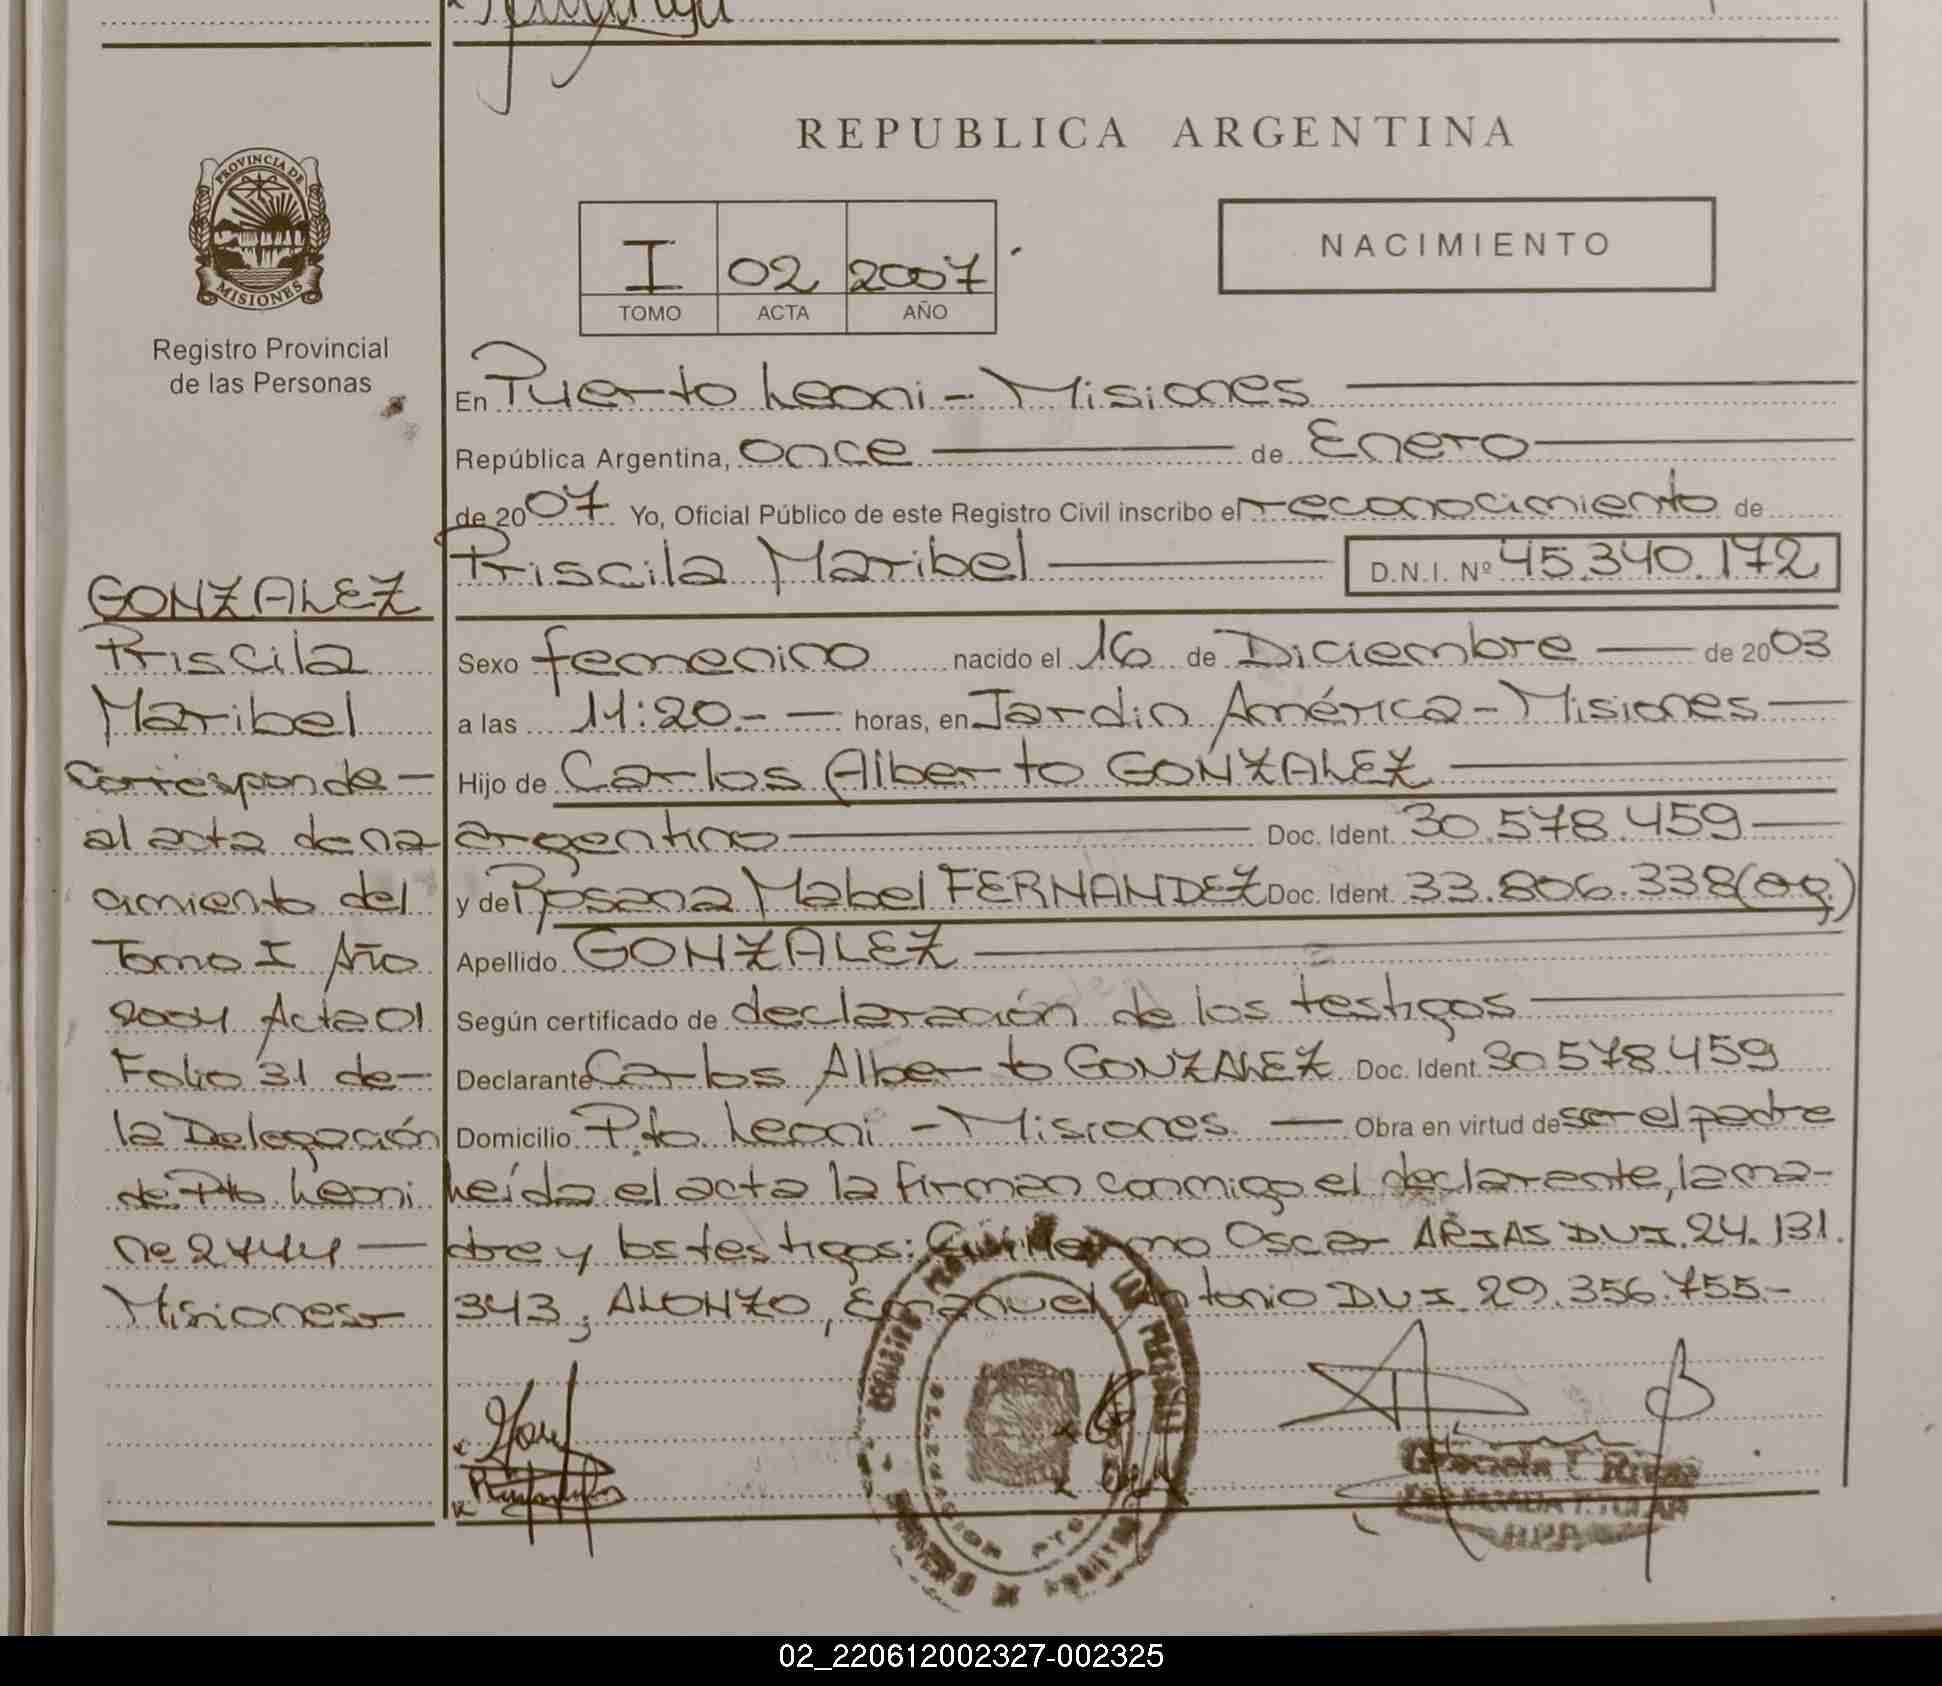 REPUBLICA ARGENTINA
PROVINCIA DE
MISIONES
Registro Provincial
de las Personas
I 02 2007
TOMO ACTA AÑO
NACIMIENTO
En Puerto Leoni - Misiones
República Argentina, once de Enero
de 2007 Yo, Oficial Público de este Registro Civil inscribo el reconocimiento de
Priscila Maribel D.N.I. Nº 45.340.172
Sexo femenino nacido el 16 de Diciembre de 2003
a las 11:20.- horas, en Jardin América - Misiones
Hijo de Carlos Alberto GONZALEZ
argentino Doc. Ident. 30.578.459
y de Rosana Mabel FERNANDEZ Doc. Ident. 33.806.338 (ag.)
Apellido GONZALEZ
Según certificado de declaración de los testigos
Declarante Carlos Alberto GONZALEZ Doc. Ident. 30.578.459
Domicilio Pto. Leoni - Misiones. Obra en virtud de ser el padre
Leída el acta la firman conmigo el declarante, la ma-
dre y los testigos: Guillermo Oscar ARIAS DUI. 24.131.
343; ALONZO, Emanuel Antonio DUI 29.356.755.-
GONZALEZ
Priscila
Maribel
Corresponde
al acta de na
cimiento del
Tomo I Año
2004 Acta 01
Folio 31 de
la Delegación
de Pto Leoni
Nº 2444
Misiones
02_220612002327-002325